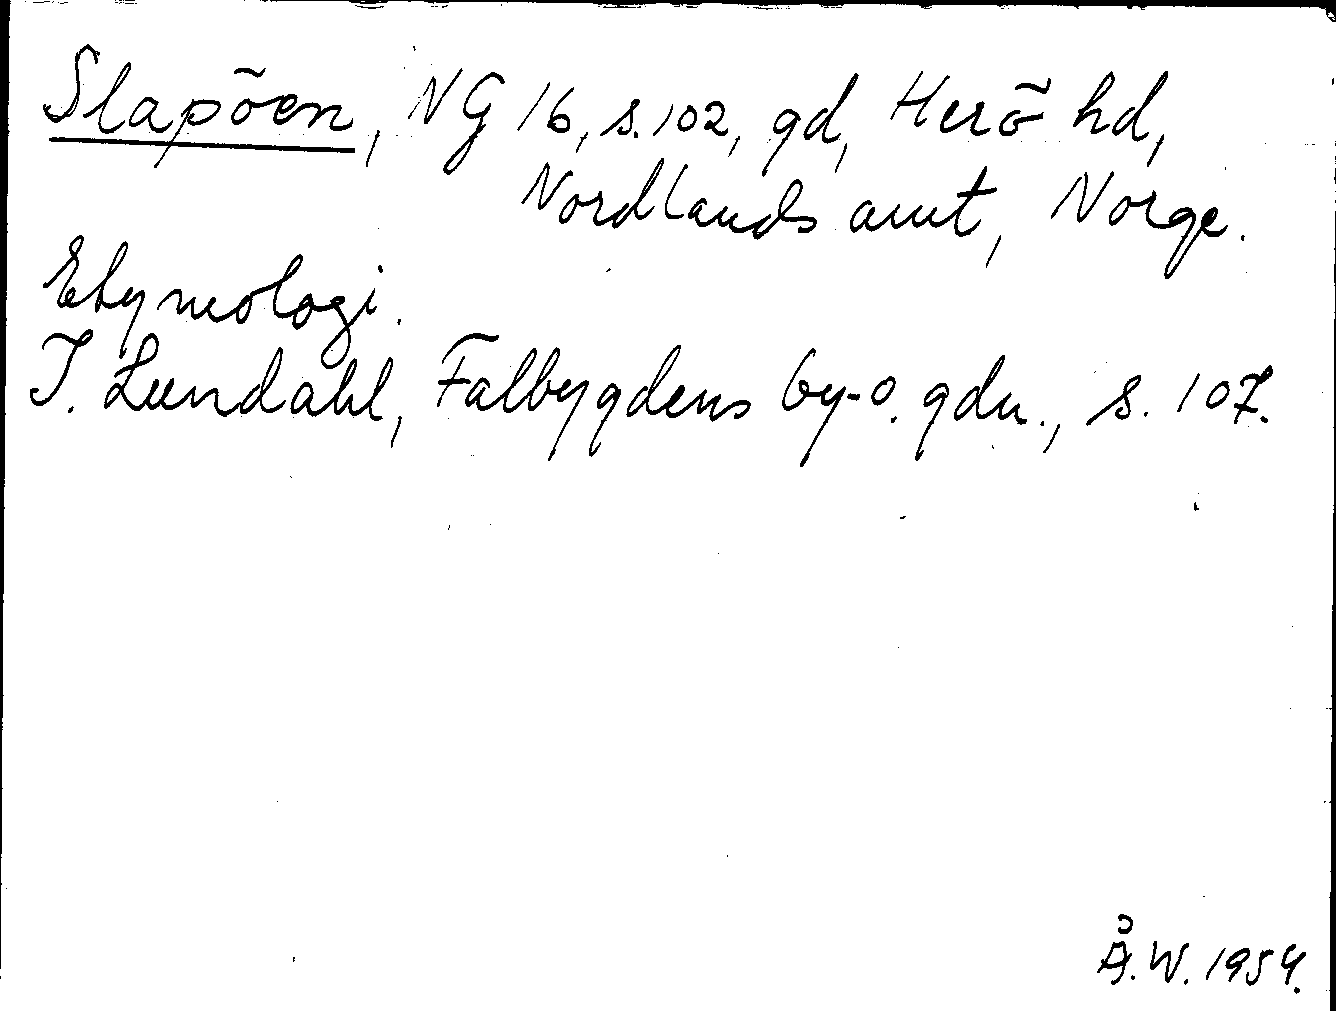 Slapöen, NG 16, s. 102, gd, Herö hd,
Nordlands amt, Norge.
Etymologi.
I. Lundahl, Falbygdens by-o. gdn., s. 107.
Å.W. 1954.